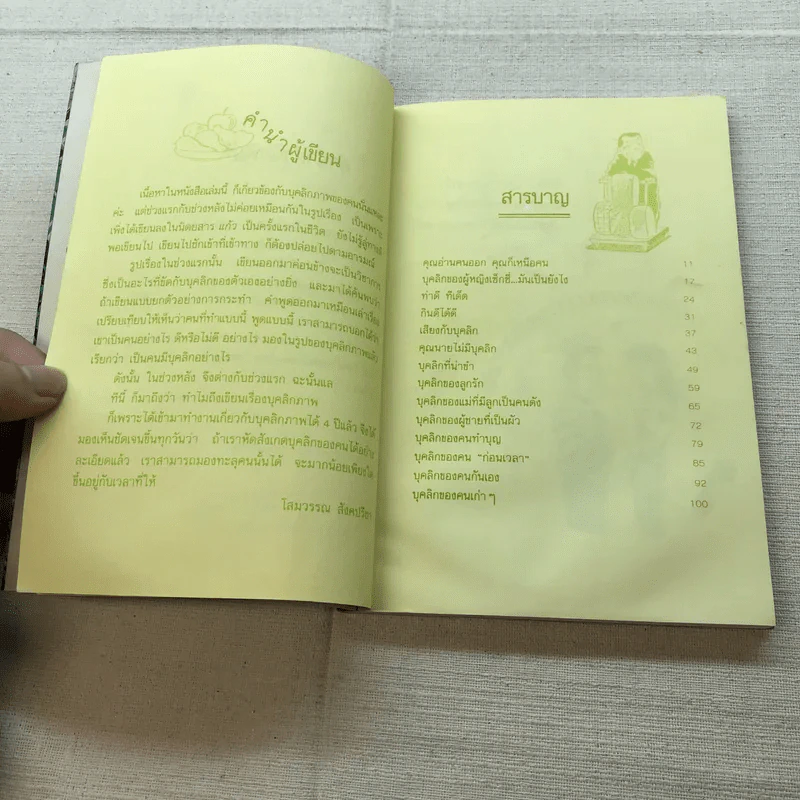 คำนำผู้เขียน
เนื้อหาในหนังสือเล่มนี้ ก็เกี่ยวข้องกับบุคลิกภาพของคนนั่นแหละ
ค่ะ แต่ช่วงแรกกับช่วงหลังไม่ค่อยเหมือนกันในรูปเรื่อง เป็นเพราะ
เพิ่งได้เขียนลงในนิตยสาร แก้ว เป็นครั้งแรกในชีวิต ยังไม่รู้
พอเขียนไป เขียนไปชักเข้าที่เข้าทาง ก็ต้องปล่อยไปตามอารมณ์
รูปเรื่องในช่วงแรกนั้น เขียนออกมาค่อนข้างจะเป็นวิชาการ
ซึ่งเป็นอะไรที่ขัดกับบุคลิกของตัวเองอย่างยิ่ง และมาได้ค้นพบว่า
ถ้าเขียนแบบยกตัวอย่างการกระทำ คำพูดออกมาเหมือนเล่าเรื่อง
เปรียบเทียบให้เห็นว่าคนที่ทำแบบนี้ พูดแบบนี้ เราสามารถบอกได้ว่า
เขาเป็นคนอย่างไร ดีหรือไม่ดี อย่างไร มองในรูปของบุคลิกภาพแล้ว
เรียกว่า เป็นคนมีบุคลิกอย่างไร
ดังนั้น ในช่วงหลัง จึงต่างกับช่วงแรก ฉะนั้นแล
ทีนี้ ก็มาถึงว่า ทำไมถึงเขียนเรื่องบุคลิกภาพ
ก็เพราะได้เข้ามาทำงานเกี่ยวกับบุคลิกภาพได้ 4 ปีแล้ว จึงได้
มองเห็นชัดเจนขึ้นทุกวันว่า ถ้าเราหัดสังเกตบุคลิกของคนได้อย่าง
ละเอียดแล้ว เราสามารถมองทะลุคนนั้นได้ จะมากน้อยเพียงใด
ขึ้นอยู่กับเวลาที่ให้
โสมวรรณ
สารบาญ
คุณอ่านคนออก คุณก็เหนือคน 11
บุคลิกของผู้หญิงเซ็กซี่...มันเป็นยังไง 17
ท่าดี ทีเด็ด 24
กินดีได้ดี 31
เสียงกับบุคลิก 37
คุณนายไม่มีบุคลิก 43
บุคลิกที่น่าขำ 49
บุคลิกของลูกรัก 59
บุคลิกของแม่ที่มีลูกเป็นคนดัง 65
บุคลิกของผู้ชายที่เป็นผัว 72
บุคลิกของคนทำบุญ 79
บุคลิกของคน "ก่อนเวลา" 85
บุคลิกของคนกันเอง 92
บุคลิกของคนเก่า ๆ 100